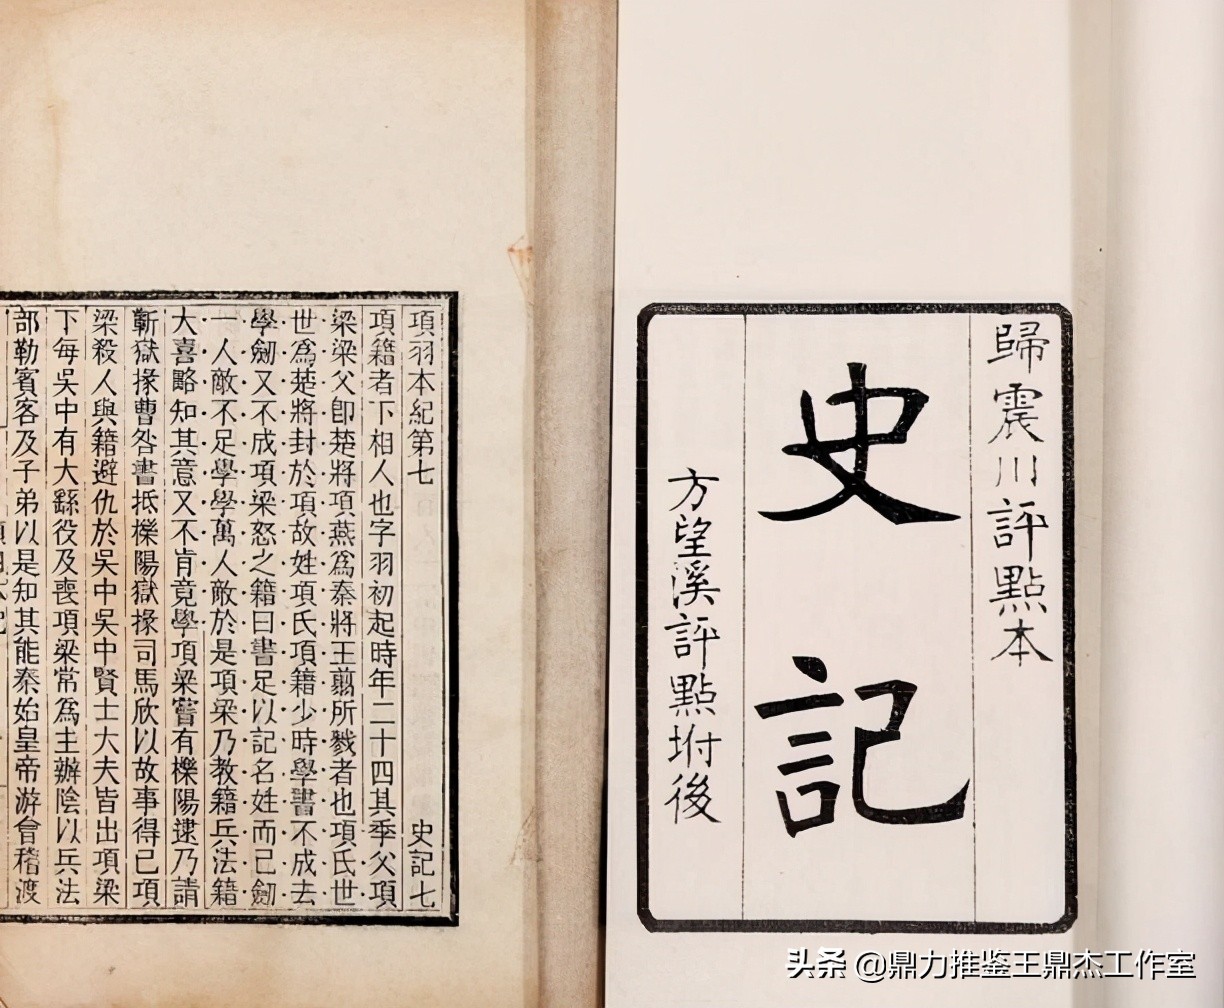 歸震川評點本
史記
方望溪評點坿後
項羽本紀第七 史記七
項籍者下相人也字羽初起時年二十四其季父項
梁梁父卽楚將項燕爲秦將王翦所戮者也項氏世
世爲楚將封於項故姓項氏項籍少時學書不成去
學劒又不成項梁怒之籍曰書足以記名姓而已劒
一人敵不足學學萬人敵於是項梁乃教籍兵法籍
大喜略知其意又不肯竟學項梁嘗有櫟陽逮乃請
蘄獄掾曹咎書抵櫟陽獄掾司馬欣以故事得已項
梁殺人與籍避仇於吳中吳中賢士大夫皆出項梁
下每吳中有大繇役及喪項梁常爲主辦陰以兵法
部勒賓客及子弟以是知其能秦始皇帝游會稽渡
头条 @鼎力推鉴王鼎杰工作室